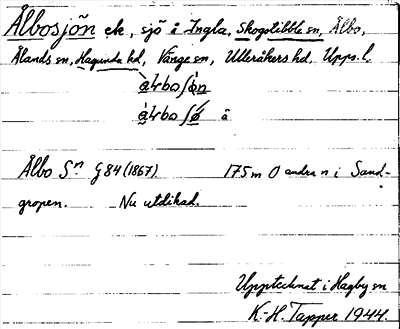 Ålbosjön ek, sjö å Ingla, Skogstibble sn, Ålbo,
Ålands sn, Hagunda hd, Vänge sn, Ulleråkers hd, Upps. l.
Ålbo Sn G 84 (1867) 175 m O andra n i Sand-
gropen. Nu utdikad.
Upptecknat i Hagby sn
K.-H. Tapper 1944.